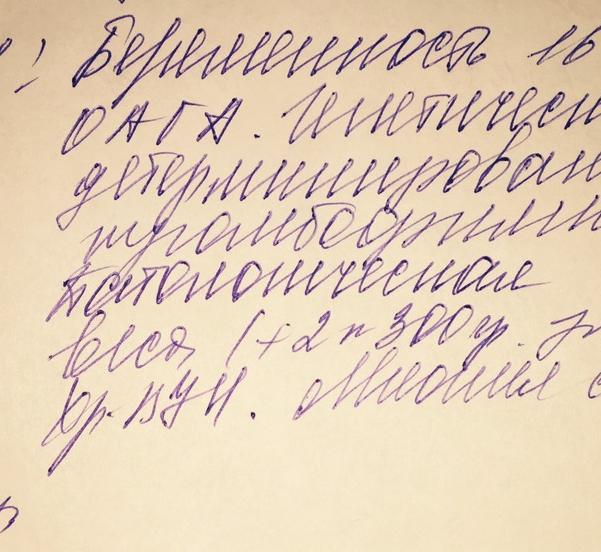 ! Беременность 16
ОАГА. Генетическ
детерминирован
тромбофили
Патологическая
веса (+2 к 300 гр.
Хр. ВУИ. Миопия с